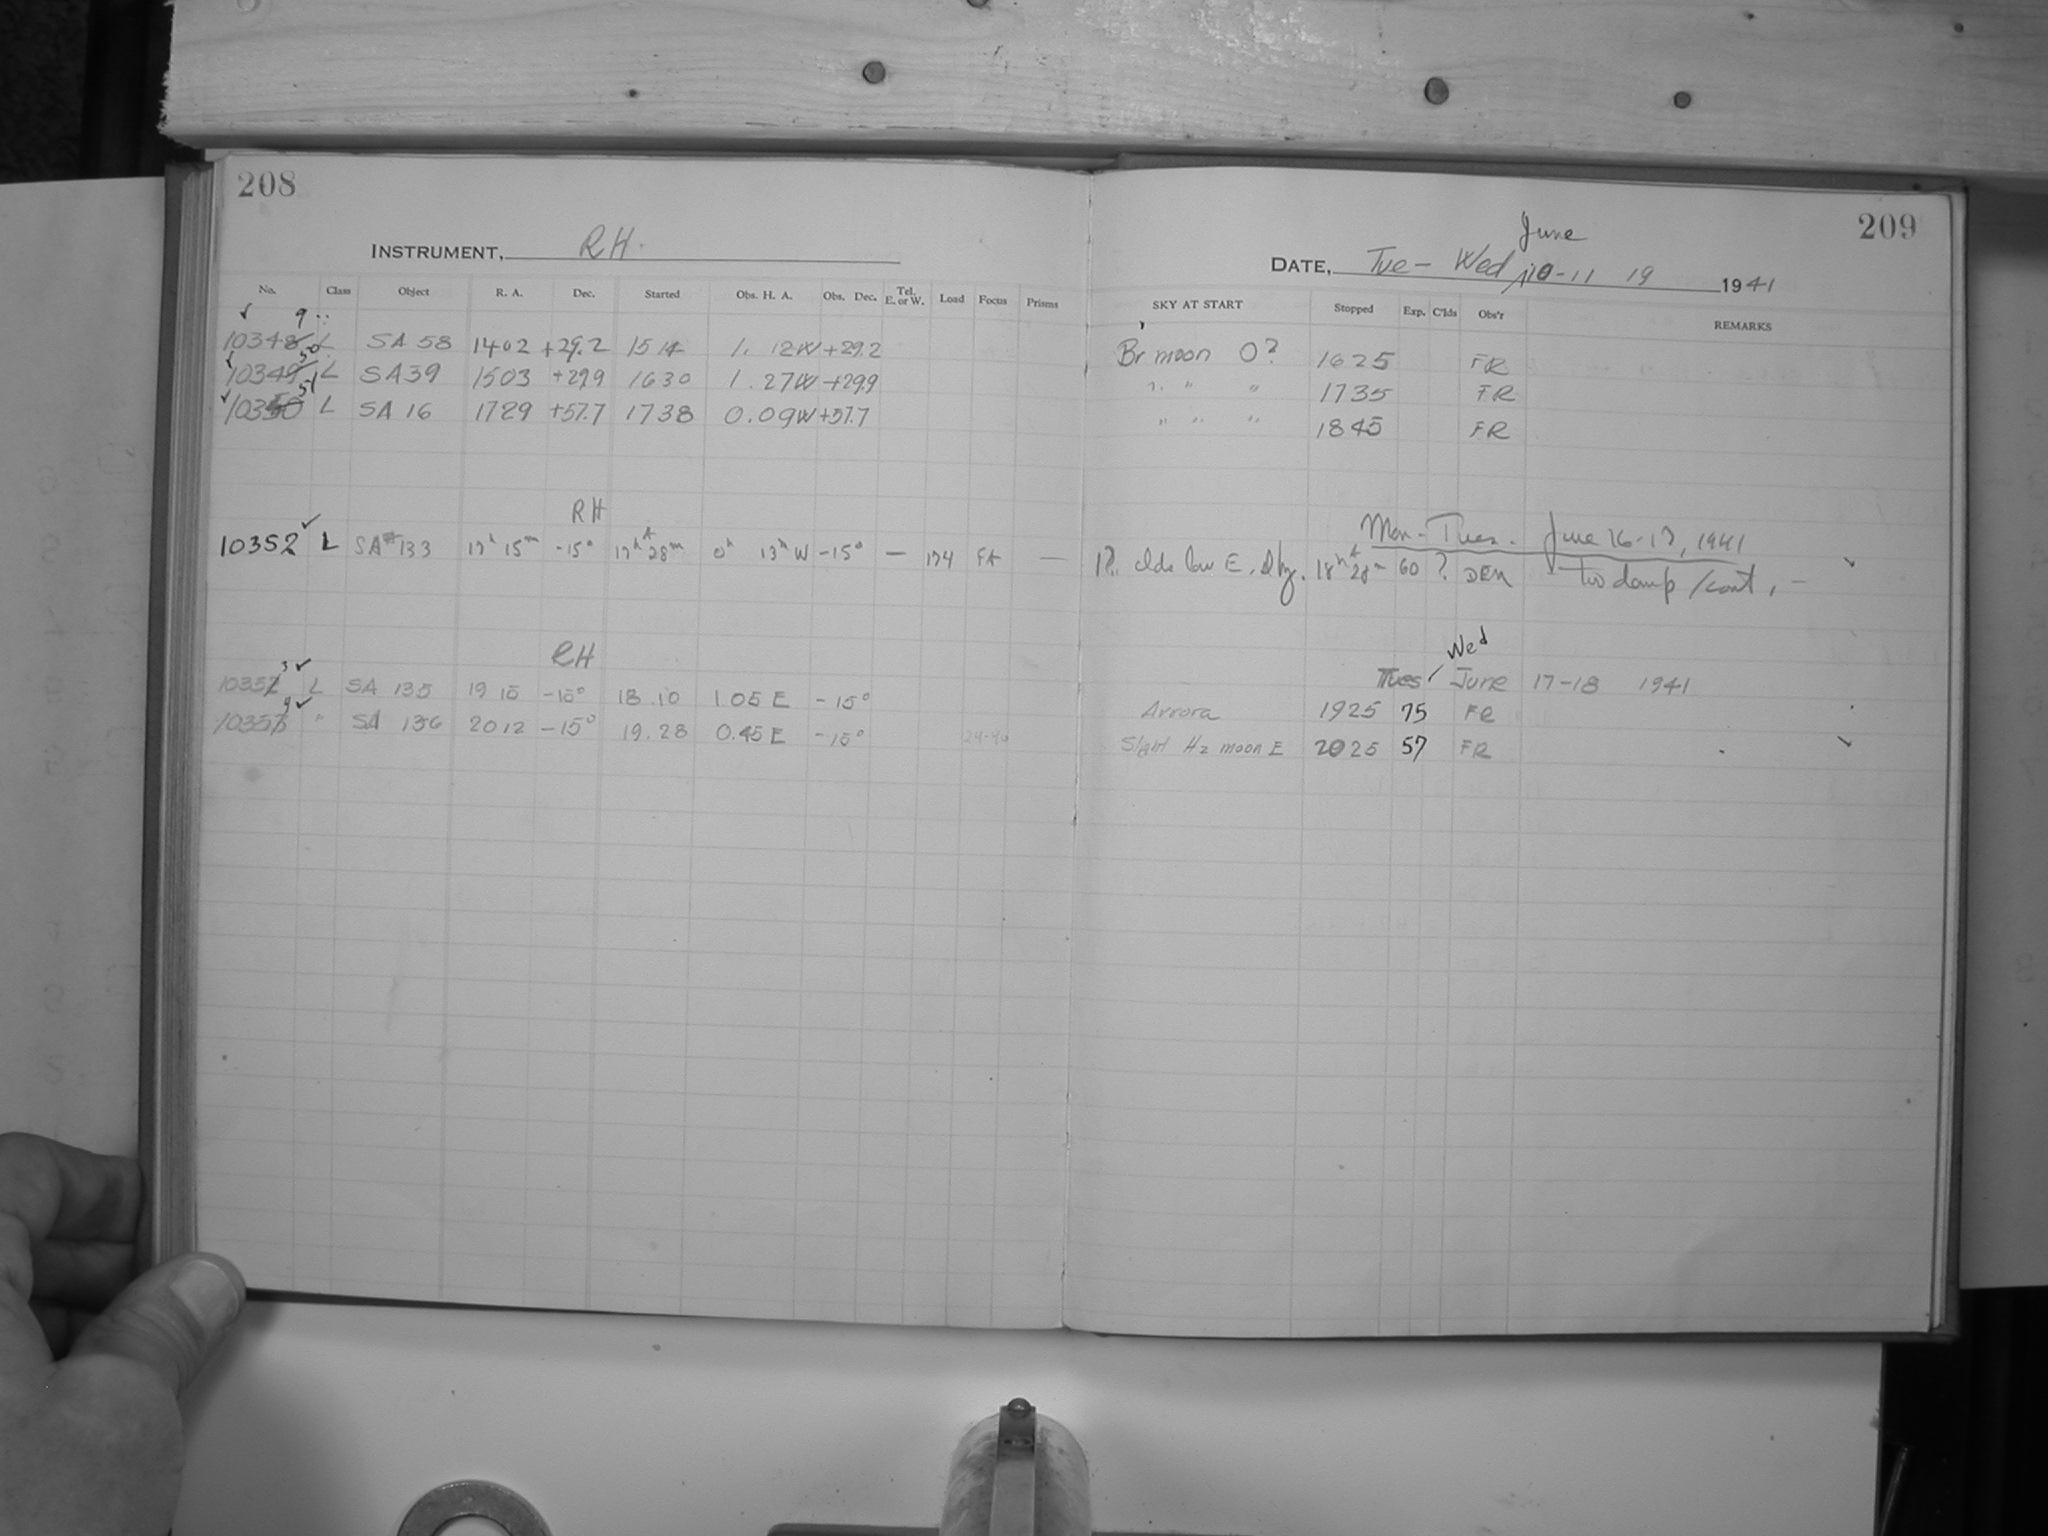 208
INSTRUMENT, RH.
No. Class Object R. A. Dec. Started Obs. H. A. Obs. Dec. Tel. E. or W. Load Focus Prisms
10348 9 L SA 58 1402 +29.2 1514 1. 12W +29.2
10349 50 L SA39 1503 +29.9 1630 1.27W +29.9
10350 51 L SA 16 1729 +57.7 1738 0.09W +57.7
RH
10352 L SA#133 17h 15m -15° 17h 28m 0h 13m W -15° — 174 FA —
RH
10352 3 L SA 135 19 15 -15° 18.10 1.05 E -15°
10353 " SA 136 2012 -15° 19.28 0.45 E -15° 24-40
209
June
DATE, Tue - Wed 10-11 19 1941
SKY AT START Stopped Exp. C'lds Obs'r REMARKS
Br moon 0? 1625 FR
" " " 1735 FR
" " " 1845 FR
Mon - Tues. June 16-17, 1941
clds low E. 18h 28m 60 ? DEM too damp / cont. —
Wed
Tues June 17-18 1941
Arrora 1925 75 FR
Slight Hz moon E 2025 57 FR